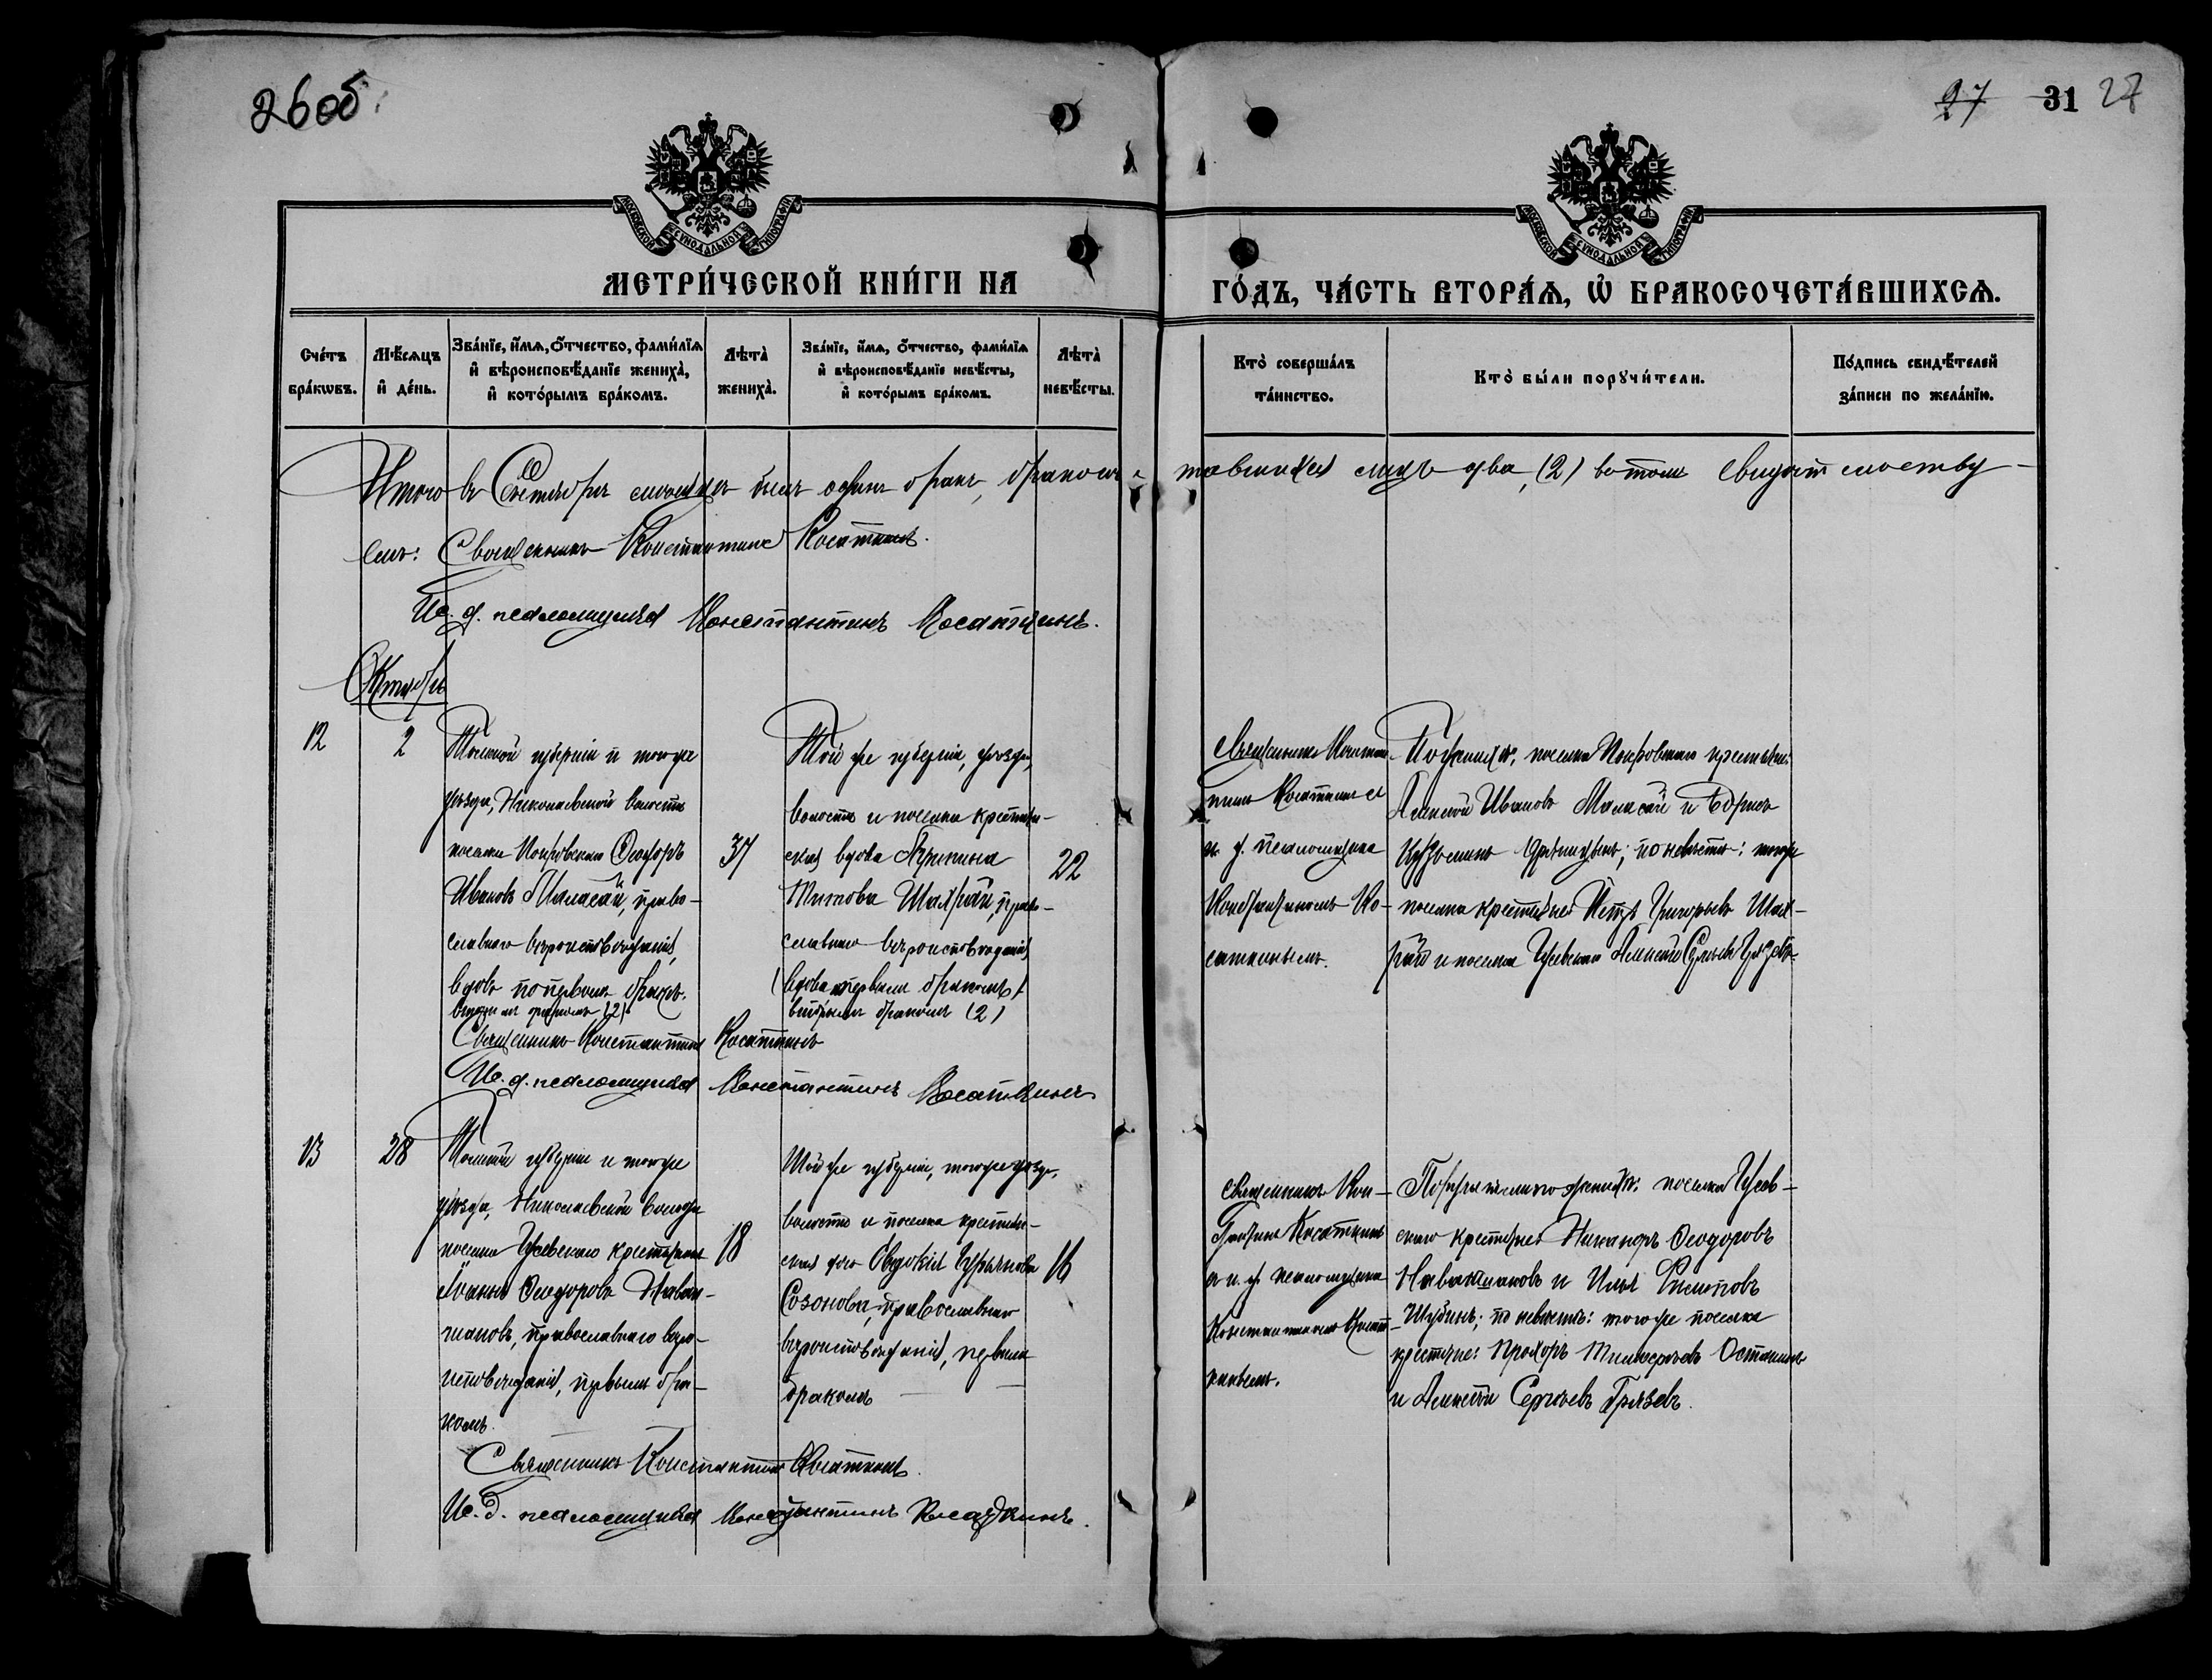 26 об.
27 31 27
МОСКОВСКОЙ СУНОДАЛЬНОЙ ТИПОГРАФІИ
МОСКОВСКОЙ СУНОДАЛЬНОЙ ТИПОГРАФІИ
МЕТРИ́ЧЕСКОЙ КНИ́ГИ НА
ГО́ДЪ, ЧА́СТЬ ВТОРА́Ѧ, Ѽ БРАКОСОЧЕТА́ВШИХСѦ.
Сче́тъ
бра́кѡвъ.
Мѣ́сѧцъ
и҆ де́нь.
Зва́нїе, и҆́мѧ, ѻ҆́тчество, фами́лїѧ
и҆ вѣроисповѣ́данїе жениха̀,
и҆ кото́рымъ бра́комъ.
Лѣта̀
жениха̀.
Зва́нїе, и҆́мѧ, ѻ҆́тчество, фами́лїѧ
и҆ вѣроисповѣ́данїе невѣ́сты,
и҆ кото́рымъ бра́комъ.
Лѣта̀
невѣ́сты.
Кто̀ соверша́лъ
та́инство.
Кто̀ бы́ли порꙋчи́тели.
По́дпись свидѣ́телей
за́писи по жела́нїю.
Итого въ Сентябрѣ мѣсяцѣ былъ одинъ бракъ,
два, (2) въ томъ свидѣтельству-
емъ: Священникъ Константинъ Косаткинъ.
И. д. псаломщика Константинъ Косаткинъ.
Октябрь
12
2
Томской губерніи и того же
уѣзда, Николаевской волости
поселка Покровскаго Ѳеодоръ
Ивановъ Маласай, право-
славнаго вѣроисповѣданія,
вдовъ по первомъ бракѣ.
вторымъ бракомъ (2)
37
Той же губерніи, уѣзда,
волости и поселка крестьян-
ская вдова Агрипина
Титова Шахрай, право-
славнаго вѣроисповѣданія
(вдова первымъ бракомъ)
вторымъ бракомъ (2)
22
Священникъ Констан-
тинъ Косаткинъ съ
и. д. псаломщика
Константиномъ Ко-
саткинымъ.
По женихѣ: поселка Покровскаго крестьяне:
Алексѣй Ивановъ Маласай и Борисъ
по невѣстѣ: того же
поселка крестьяне Петръ Григорьевъ Шах-
рай и поселка Гусевскаго Алексѣй
Священникъ Константинъ Косаткинъ
И. д. псаломщика Константинъ Косаткинъ
13
28
Томской губерніи и того же
уѣзда, Николаевской волости
поселка Гусевскаго крестьянинъ
Іоаннъ Ѳеодоровъ Наваль-
православнаго вѣро-
исповѣданія, первымъ бра-
комъ.
18
Той же губерніи, того же уѣзда,
волости и поселка крестьян-
ская дочь Евдокія Гурьянова
Созонова, православнаго
вѣроисповѣданія, первымъ
бракомъ
16
Священникъ Кон-
стантинъ Косаткинъ
и и. д. псаломщика
Константиномъ Косат-
кинымъ.
по женихѣ: поселка Гусев-
скаго крестьяне Никаноръ Ѳеодоровъ
и Илья Филиповъ
Шубинъ; по невѣстѣ: того же поселка
крестьяне: Прохоръ Тимоѳеевъ Останинъ
и Алексѣй Сергѣевъ Грязевъ.
Священникъ Константинъ Косаткинъ.
И. д. псаломщика Константинъ Косаткинъ.